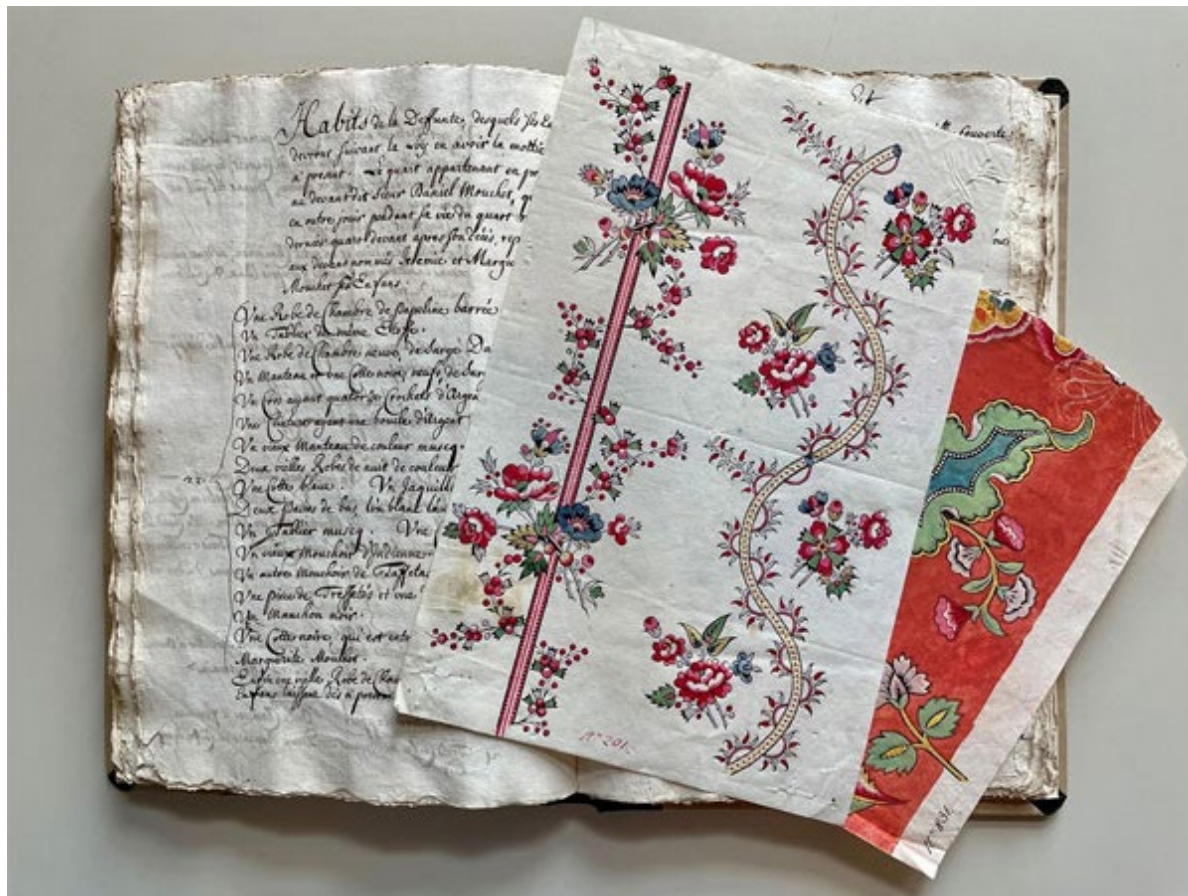 Habits de la Deffunte, desquels ses En
devront suivant la Loy en avoir la moitié
à present. Le quart appartenant en pr
au devant dit Sieur Daniel Mouchet, q
en outre jouir pendant sa vie du quart
dernier quart devant apres son
aux devant nommés et Margu
Mouchet ses Enfans.
Une Robe de Chambre de papeline barrée
Un Tablier de même Etoffe.
Une Robe de Chambre neuve, de Sarge
Un Manteau et une Cotte noire, neufs, de Sar
Un Cors ayant quatorze Crochets d'Argen
Une Ceinture ayant une boucle d'Argent
Un vieux Manteau de couleur muscq
Deux vielles Robes de nuit de couleur
22. Une Cotte bleue. Un
Deux paires de bas, l'un blanc l'au
Un Tablier muscq Une
Un vieux Mouchoir d'Indienne
Un autre Mouchoir de Taffeta
Une piece de et une
Un Manchon noir.
Une Cotte noire, qui est
Marguerite Mouchet.
une vielle Robe de Cham
Enfans laissent dès à present
couverte
N° 201.
N° 831